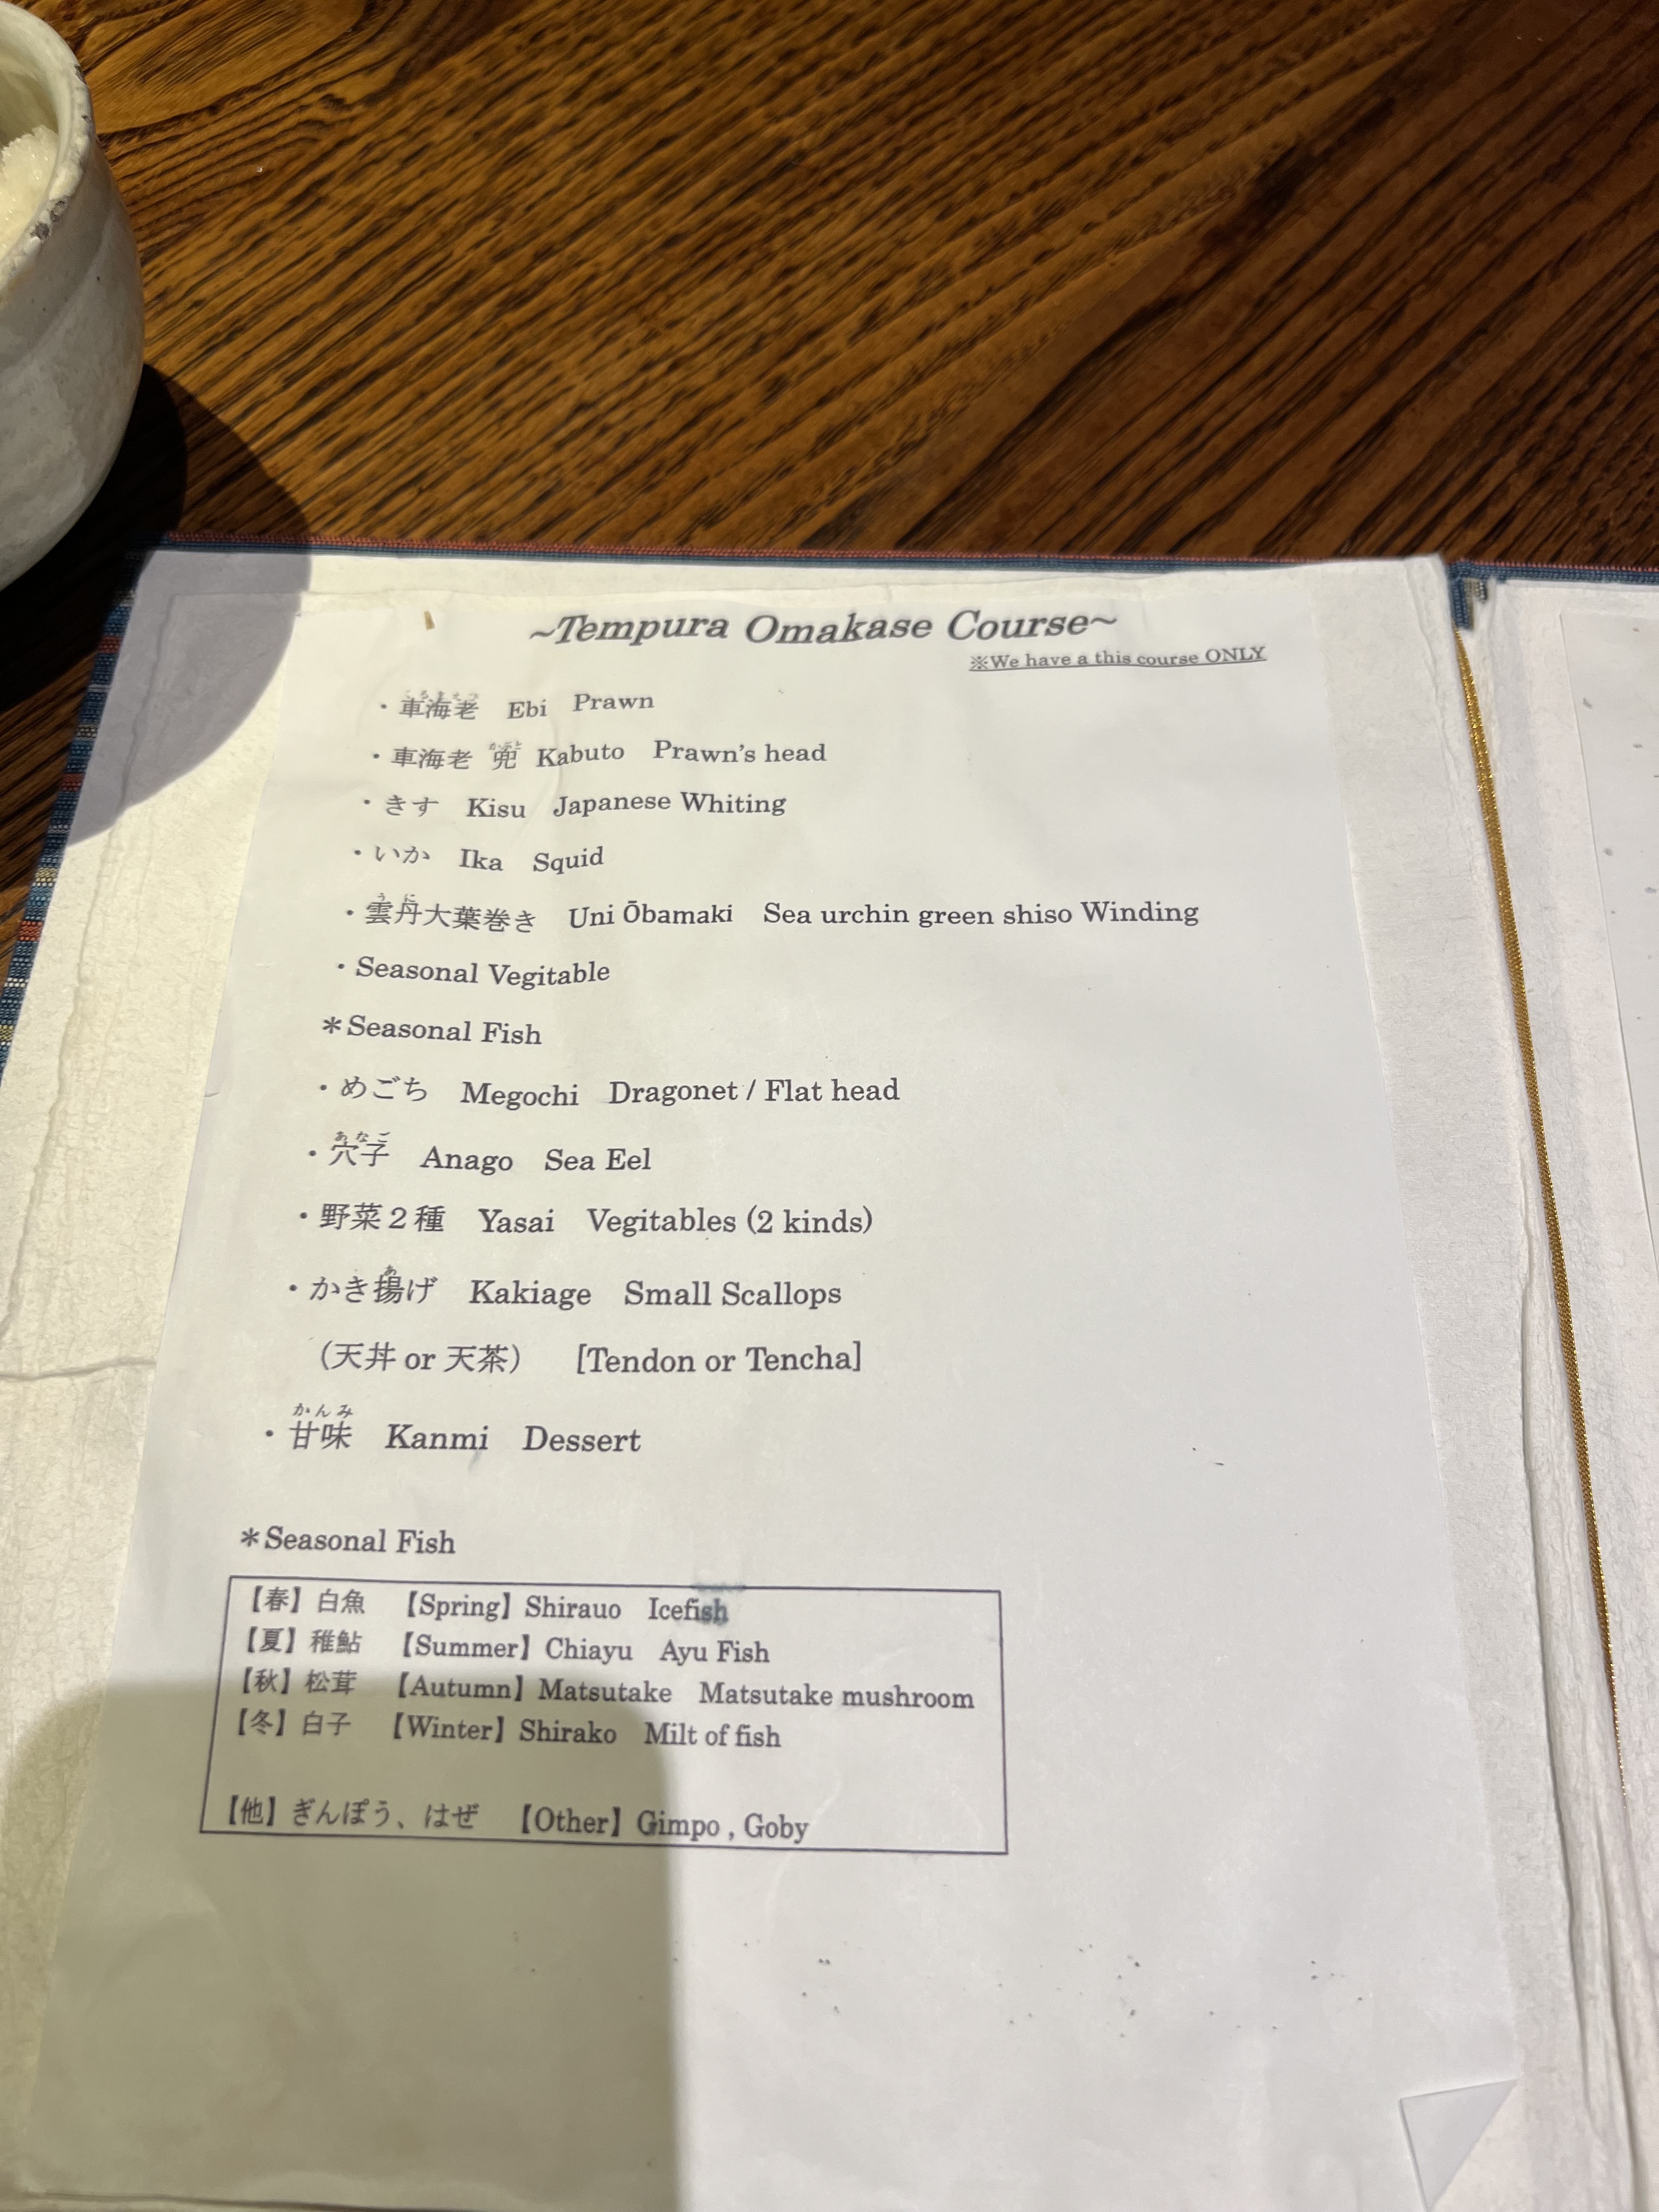 ~Tempura Omakase Course~
※We have a this course ONLY
・車海老 Ebi Prawn
・車海老 兜 Kabuto Prawn's head
・きす Kisu Japanese Whiting
・いか Ika Squid
・雲丹大葉巻き Uni Ōbamaki Sea urchin green shiso Winding
・Seasonal Vegitable
＊Seasonal Fish
・めごち Megochi Dragonet / Flat head
・穴子 Anago Sea Eel
・野菜２種 Yasai Vegitables (2 kinds)
・かき揚げ Kakiage Small Scallops
（天丼 or 天茶） [Tendon or Tencha]
・甘味 Kanmi Dessert
＊Seasonal Fish
【春】白魚 【Spring】Shirauo Icefish
【夏】稚鮎 【Summer】Chiayu Ayu Fish
【秋】松茸 【Autumn】Matsutake Matsutake mushroom
【冬】白子 【Winter】Shirako Milt of fish
【他】ぎんぽう、はぜ 【Other】Gimpo , Goby